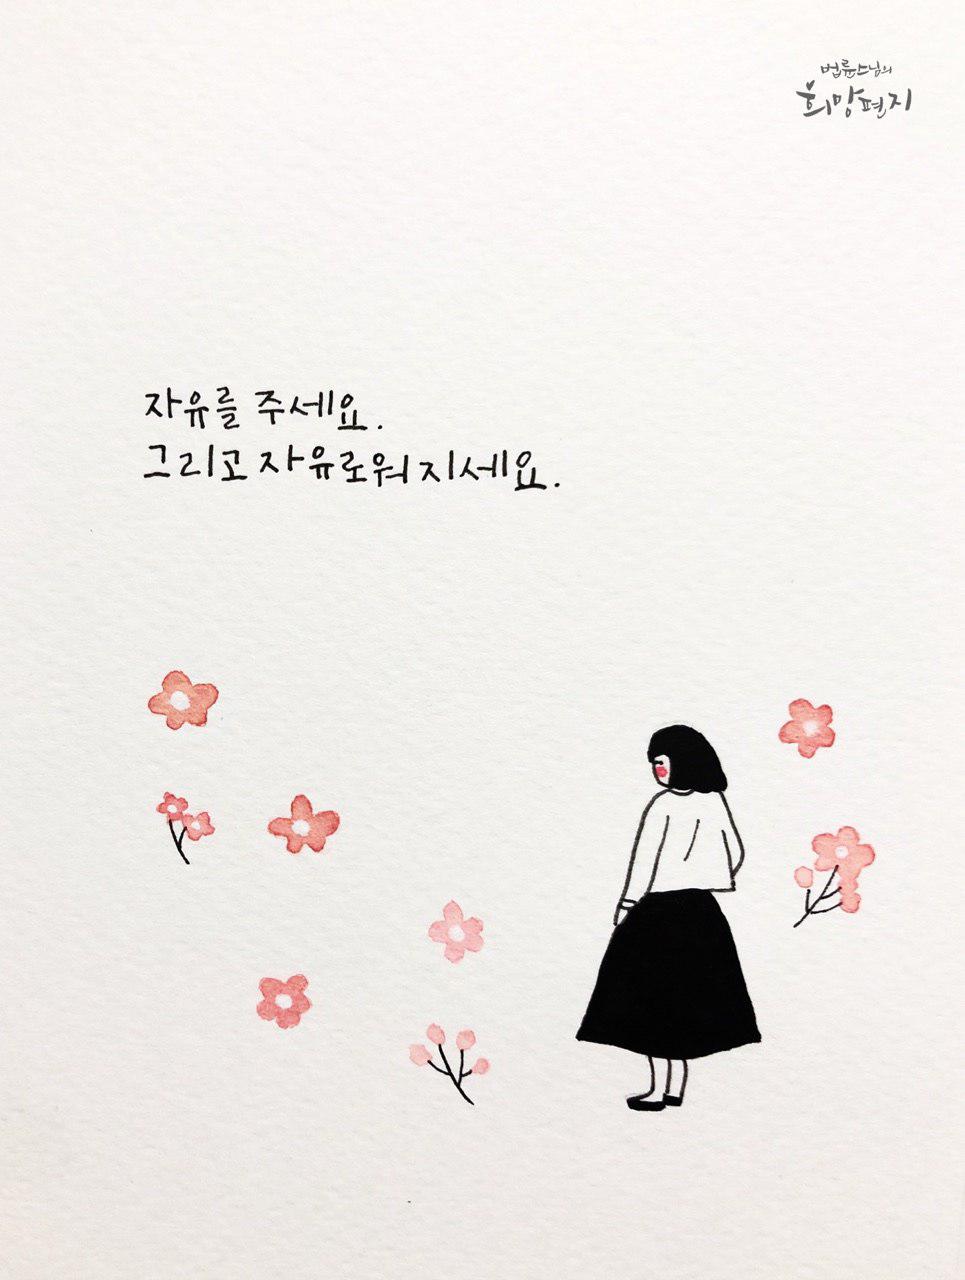 법륜스님의
희망편지
자유를 주세요.
그리고 자유로워지세요.